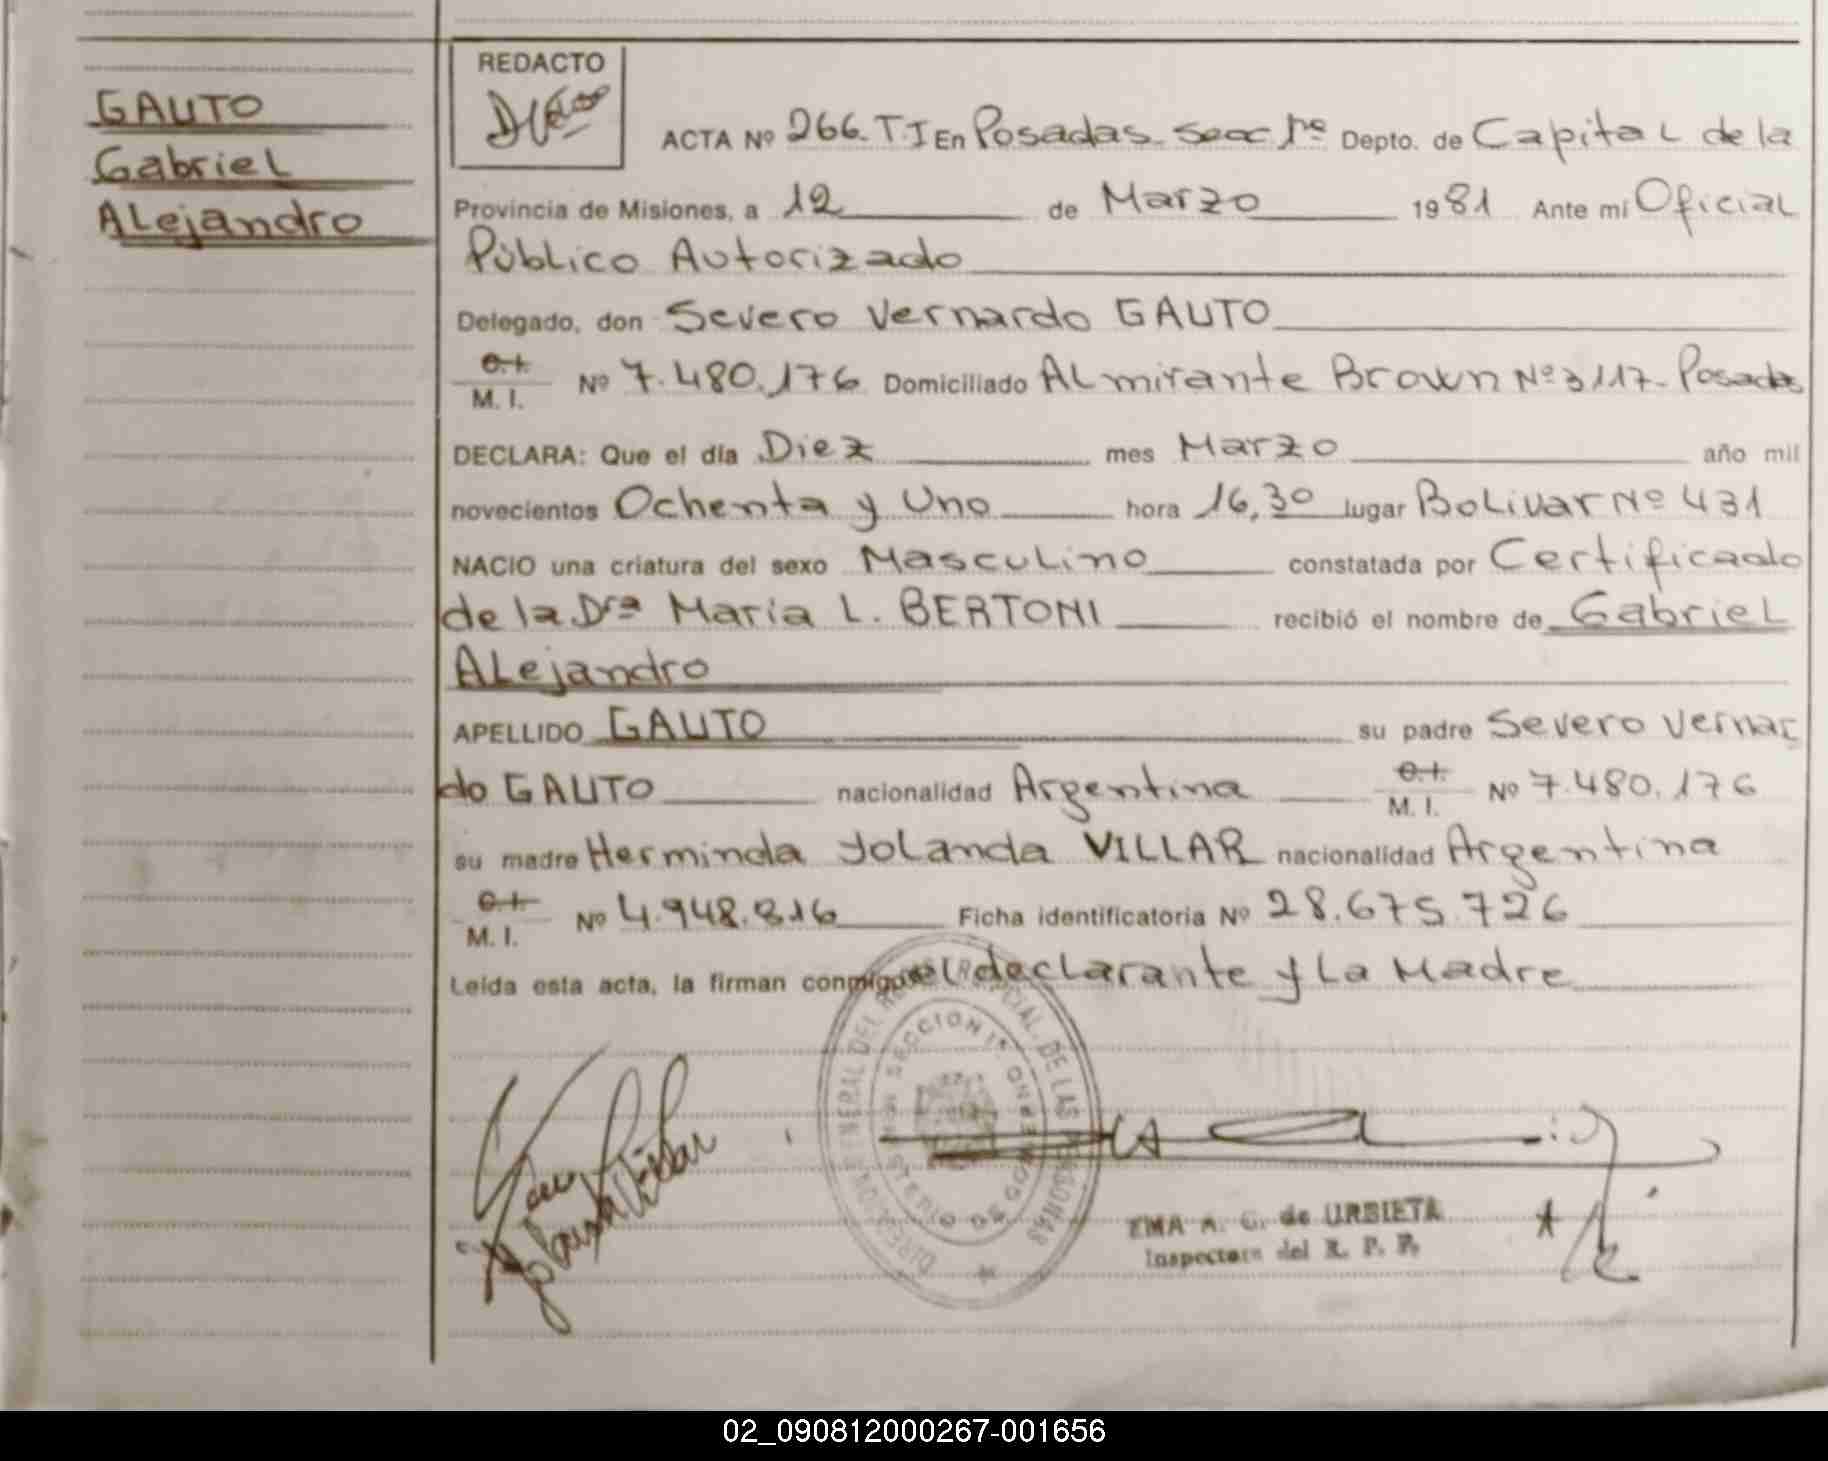 GAUTO
Gabriel
ALejandro
REDACTO
ACTA Nº 266. T.I En Posadas. Secc 1ª Depto. de Capital de la
Provincia de Misiones, a 12 de Marzo 1981 Ante mí Oficial
Público Autorizado
Delegado, don Severo Vernardo GAUTO
C.I.
M. I. Nº 7.480.176 Domiciliado ALmirante Brown Nº 3117- Posadas
DECLARA: Que el día Diez mes Marzo año mil
novecientos Ochenta y Uno hora 16,30 lugar BoLivar Nº 431
NACIO una criatura del sexo MascuLino constatada por Certificado
de la Drª Maria L. BERTONI recibió el nombre de GabrieL
ALejandro
APELLIDO GAUTO su padre Severo Vernar
do GAUTO nacionalidad Argentina C.I.
M. I. Nº 7.480.176
su madre Herminda YoLanda VILLAR nacionalidad Argentina
C.I.
M. I. Nº 4.948.816 Ficha identificatoria Nº 28.675.726
Leída esta acta, la firman conmigo eL decLarante y La Madre
DIRECCION GENERAL DEL REGISTRO PROVINCIAL DE LAS PERSONAS
SECCION 1ª
MINISTERIO DE GOBIERNO
EMA A. C. de URBIETA
Inspectora del R. P. P.
02_090812000267-001656